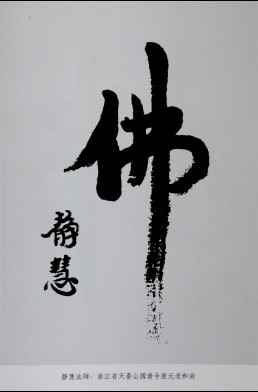 佛
静慧
静慧法師：浙江省天臺山國清寺座元老和尚